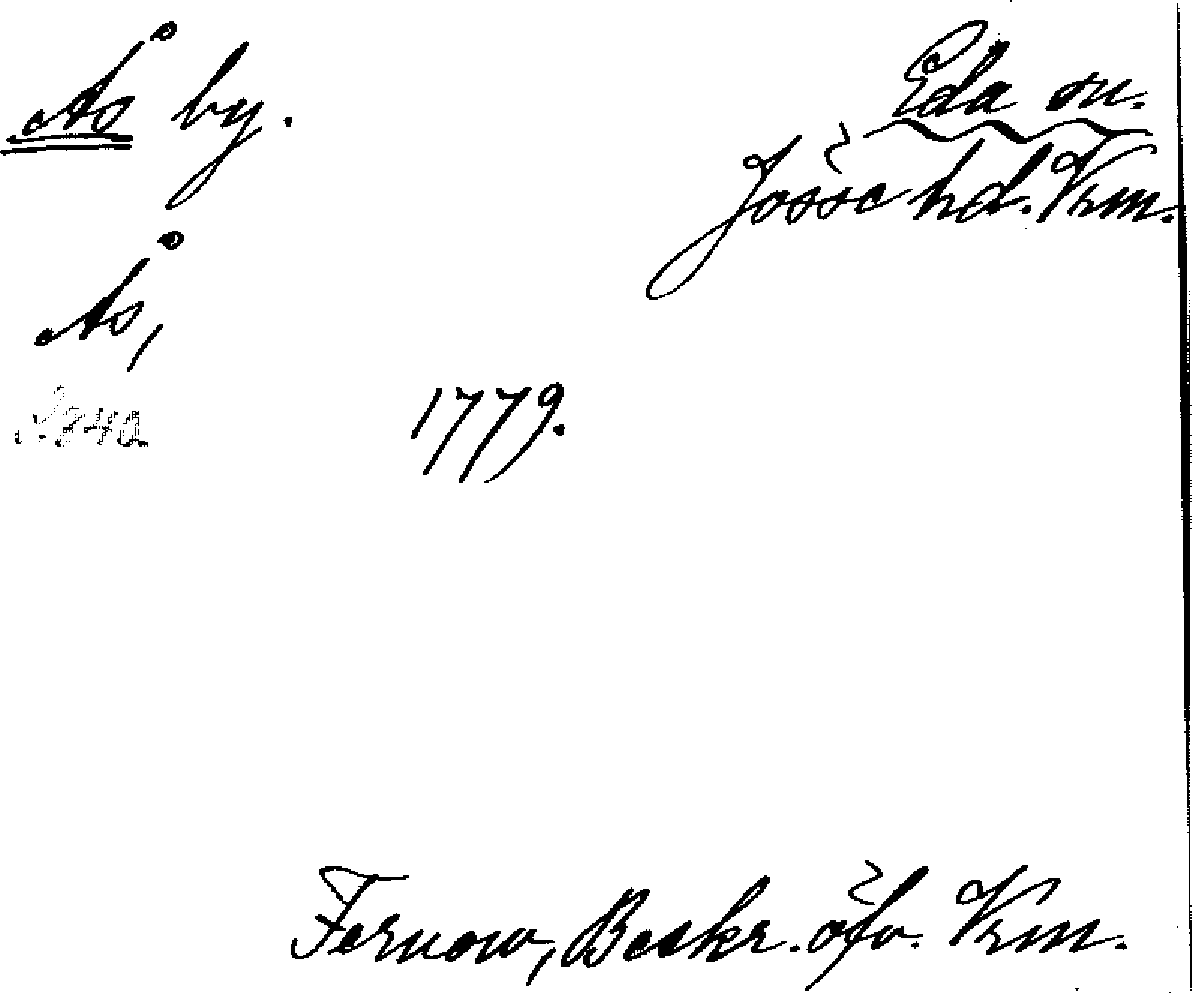 Ås by.
Eda sn.
Jösse hd. Vrm.
Ås,
1779.
Fernow, Beskr. öfv. Vrm.